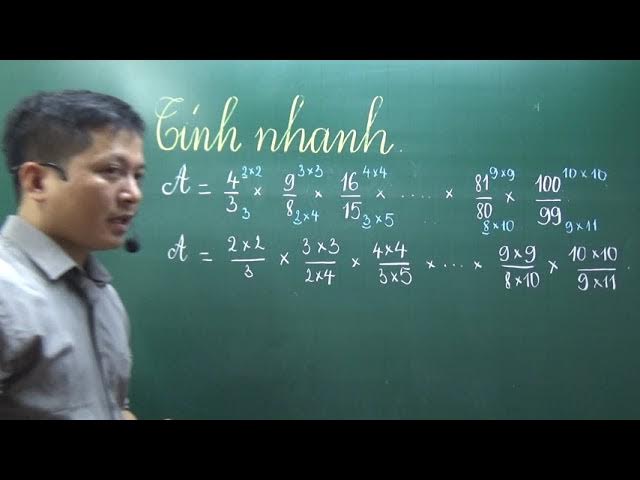 Tính nhanh.
A = 4/3 × 9/8 × 16/15 × ..... × 81/80 × 100/99
2×2 3×3 4×4 9×9 10×10
3 2×4 3×5 8×10 9×11
A = 2×2/3 × 3×3/2×4 × 4×4/3×5 × ... × 9×9/8×10 × 10×10/9×11